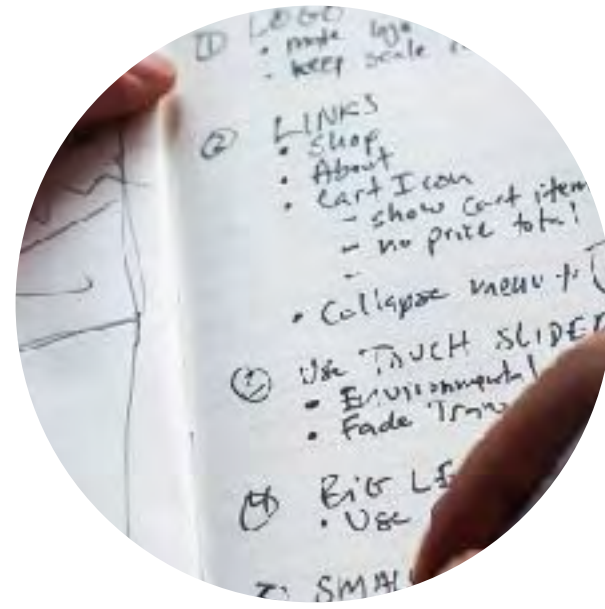 ① LOGO
• make logo
- keep scale
② LINKS
• Shop
• About
• Cart Icon
- show cart item
- no price total
-
• Collapse menu
③ Use TOUCH SLIDER
• Environmental
• Fade Tran
④ BIG
• Use
SMALL